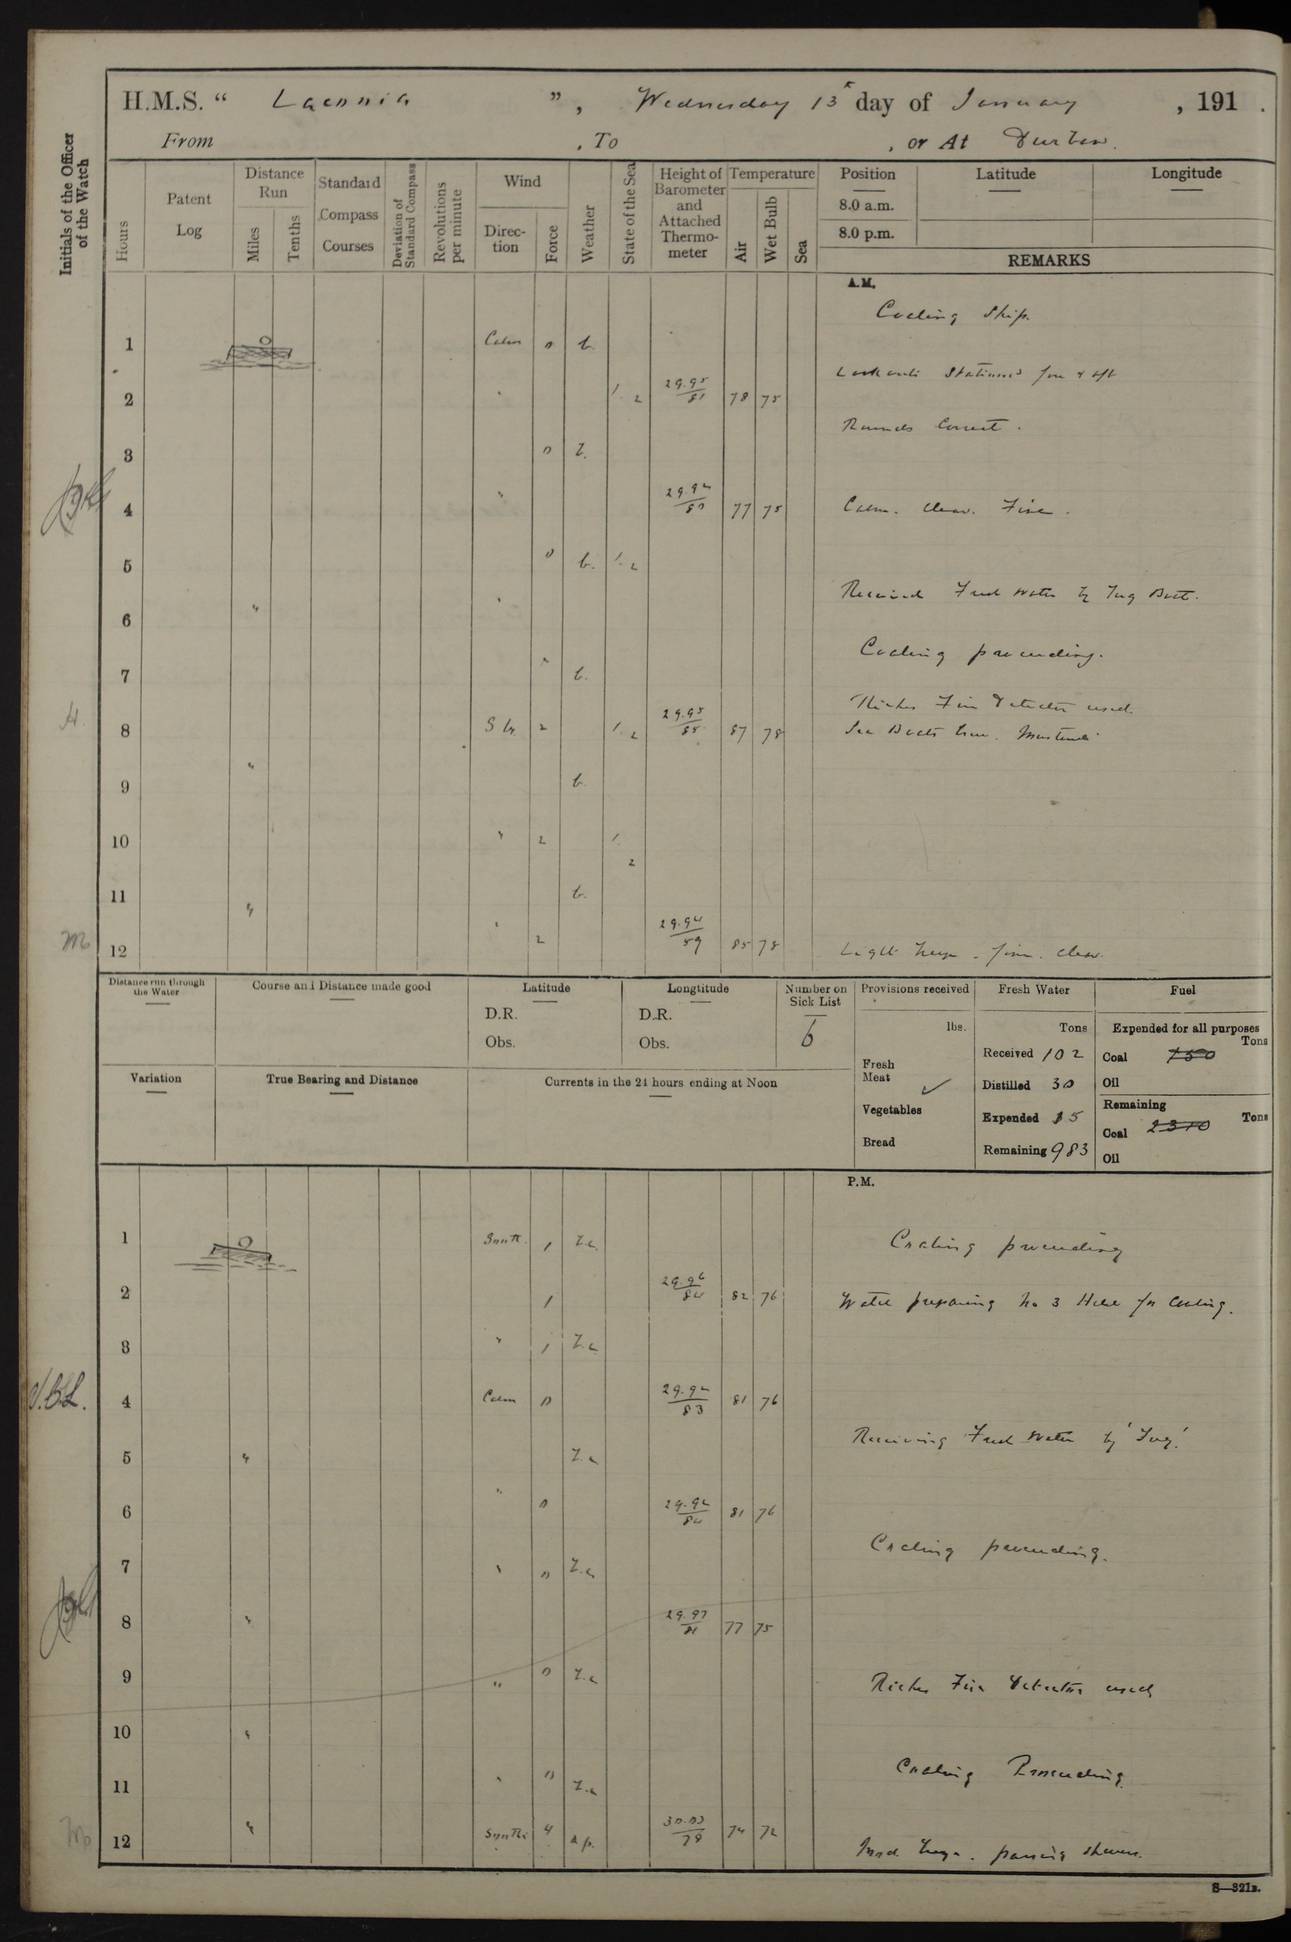 H.M.S. " Laconia ", Wednesday 13th day of January , 191 .
From , To , or At Durban.
Initials of the Officer of the Watch
Hours
Patent Log
Distance Run
Miles
Tenths
Standard Compass Courses
Deviation of Standard Compass
Revolutions per minute
Wind
Direction
Force
Weather
State of the Sea
Height of Barometer and Attached Thermometer
Temperature
Air
Wet Bulb
Sea
Position
8.0 a.m.
8.0 p.m.
Latitude
Longitude
REMARKS
A.M.
Coaling Ship.
1 Calm 0 b.
Lookouts Stationed for & aft
2 " 1. 2 29.95/81 78 75
Rounds Correct.
3 0 Z.
4 " 29.92/80 77 75 Calm. clear. Fine.
5 0 b. 1. 2
Received Fresh Water by Tug Boat.
6 " "
Coaling proceeding.
7 " b.
Riches Fire Detector used
8 2 1. 2 29.95/85 87 78 Sea Boats Crew. Mustered
9 " b.
10 " 2 1. 2
11 " b.
12 " 2 29.94/89 85 78 Light . fine. clear.
Distance run through the Water
Course and Distance made good
Latitude
D.R.
Obs.
Longtitude
D.R.
Obs.
Number on Sick List
6
Provisions received
lbs.
Fresh Meat ✓
Vegetables
Bread
Fresh Water
Tons
Received 102
Distilled 30
Expended 15
Remaining 983
Fuel
Expended for all purposes
Tons
Coal 750
Oil
Remaining
Tons
Coal 2310
Oil
Variation
True Bearing and Distance
Currents in the 24 hours ending at Noon
P.M.
1 South. 1 Z.c. Coaling proceeding
2 1 29.96/84 82 76 Water preparing No 3 Hold for Coaling.
3 " 1 Z.c.
V.B.L. 4 Calm 0 29.92/83 81 76
Receiving Fresh Water by 'Tug'.
5 " Z.c
6 " 0 29.92/84 81 76
Coaling proceeding.
7 " 0 Z.c.
8 " 29.97/81 77 75
9 " 0 Z.c Riches Fire Detector used
10 "
11 " 0 Z.c Coaling Proceeding.
12 " South 4 30.03/79 74 72 passing showers.
S—321B.